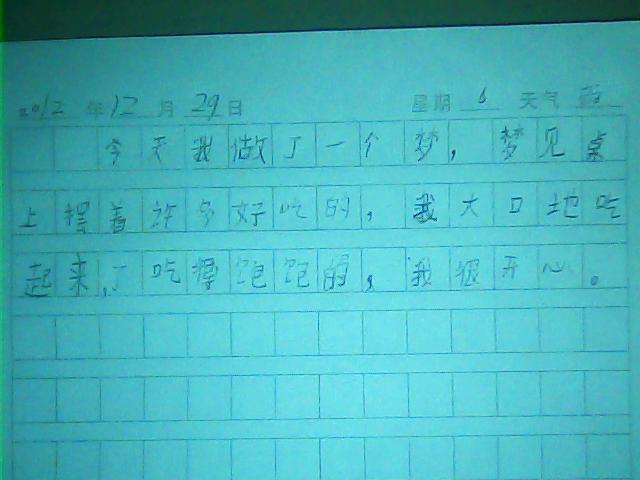 2012 年 12 月 29 日 星期 6 天气
今天我做了一个梦，梦见桌
上摆着许多好吃的，我大口地吃
起来，了吃得饱饱的，我很开心。